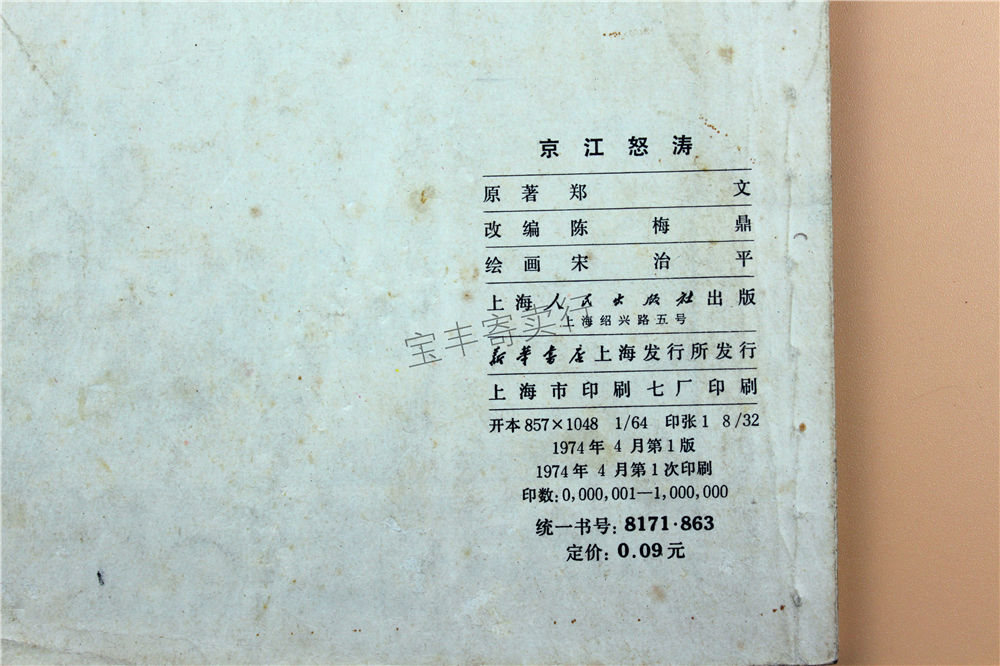 京江怒涛
原著 郑文
改编 陈梅鼎
绘画 宋治平
上海人民出版社出版
上海绍兴路五号
新华书店上海发行所发行
上海市印刷七厂印刷
开本 857×1048 1/64 印张 1 8/32
1974年 4 月第 1 版
1974年 4 月第 1 次印刷
印数:0,000,001—1,000,000
统一书号: 8171·863
定价: 0.09 元
宝丰寄卖行